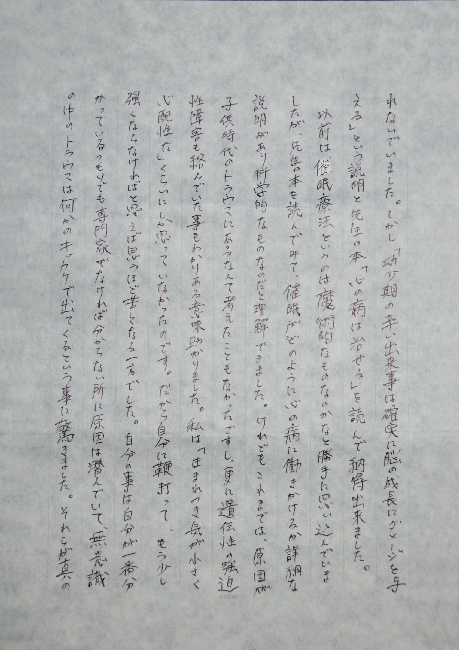 れないでいました。しかし「幼少期の辛い出来事は確実に脳の成長にダメージを与
える」という説明と先生の本「心の病は治せる」を読んで納得出来ました。
以前は催眠療法というのは魔術的なものなのかなと勝手に思い込んでいま
したが、先生の本を読んでみて、催眠がどのように心の病に働きかけるか詳細な
説明があり科学的なものなのだと理解できました。けれどもこれまでは、原因が
子供時代のトラウマにあるなんて考えたこともなかったですし、更に遺伝性の強迫
性障害も絡んでいた事もわかりある意味助かりました。私は「生まれつき気が小さく
心配性な」くらいにしか思っていなかったのです。だから自分に鞭打って、もう少し
強くならなければと思えば思うほど苦しくなる一方でした。自分の事は自分が一番分
かっているつもりでも専門家でなければ分からない所に原因は潜んでいて、無意識
の中のトラウマは何かのキッカケで出てくるという事に驚きました。それも真の